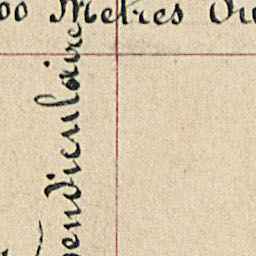 00 Metres Ou
pendiculaire